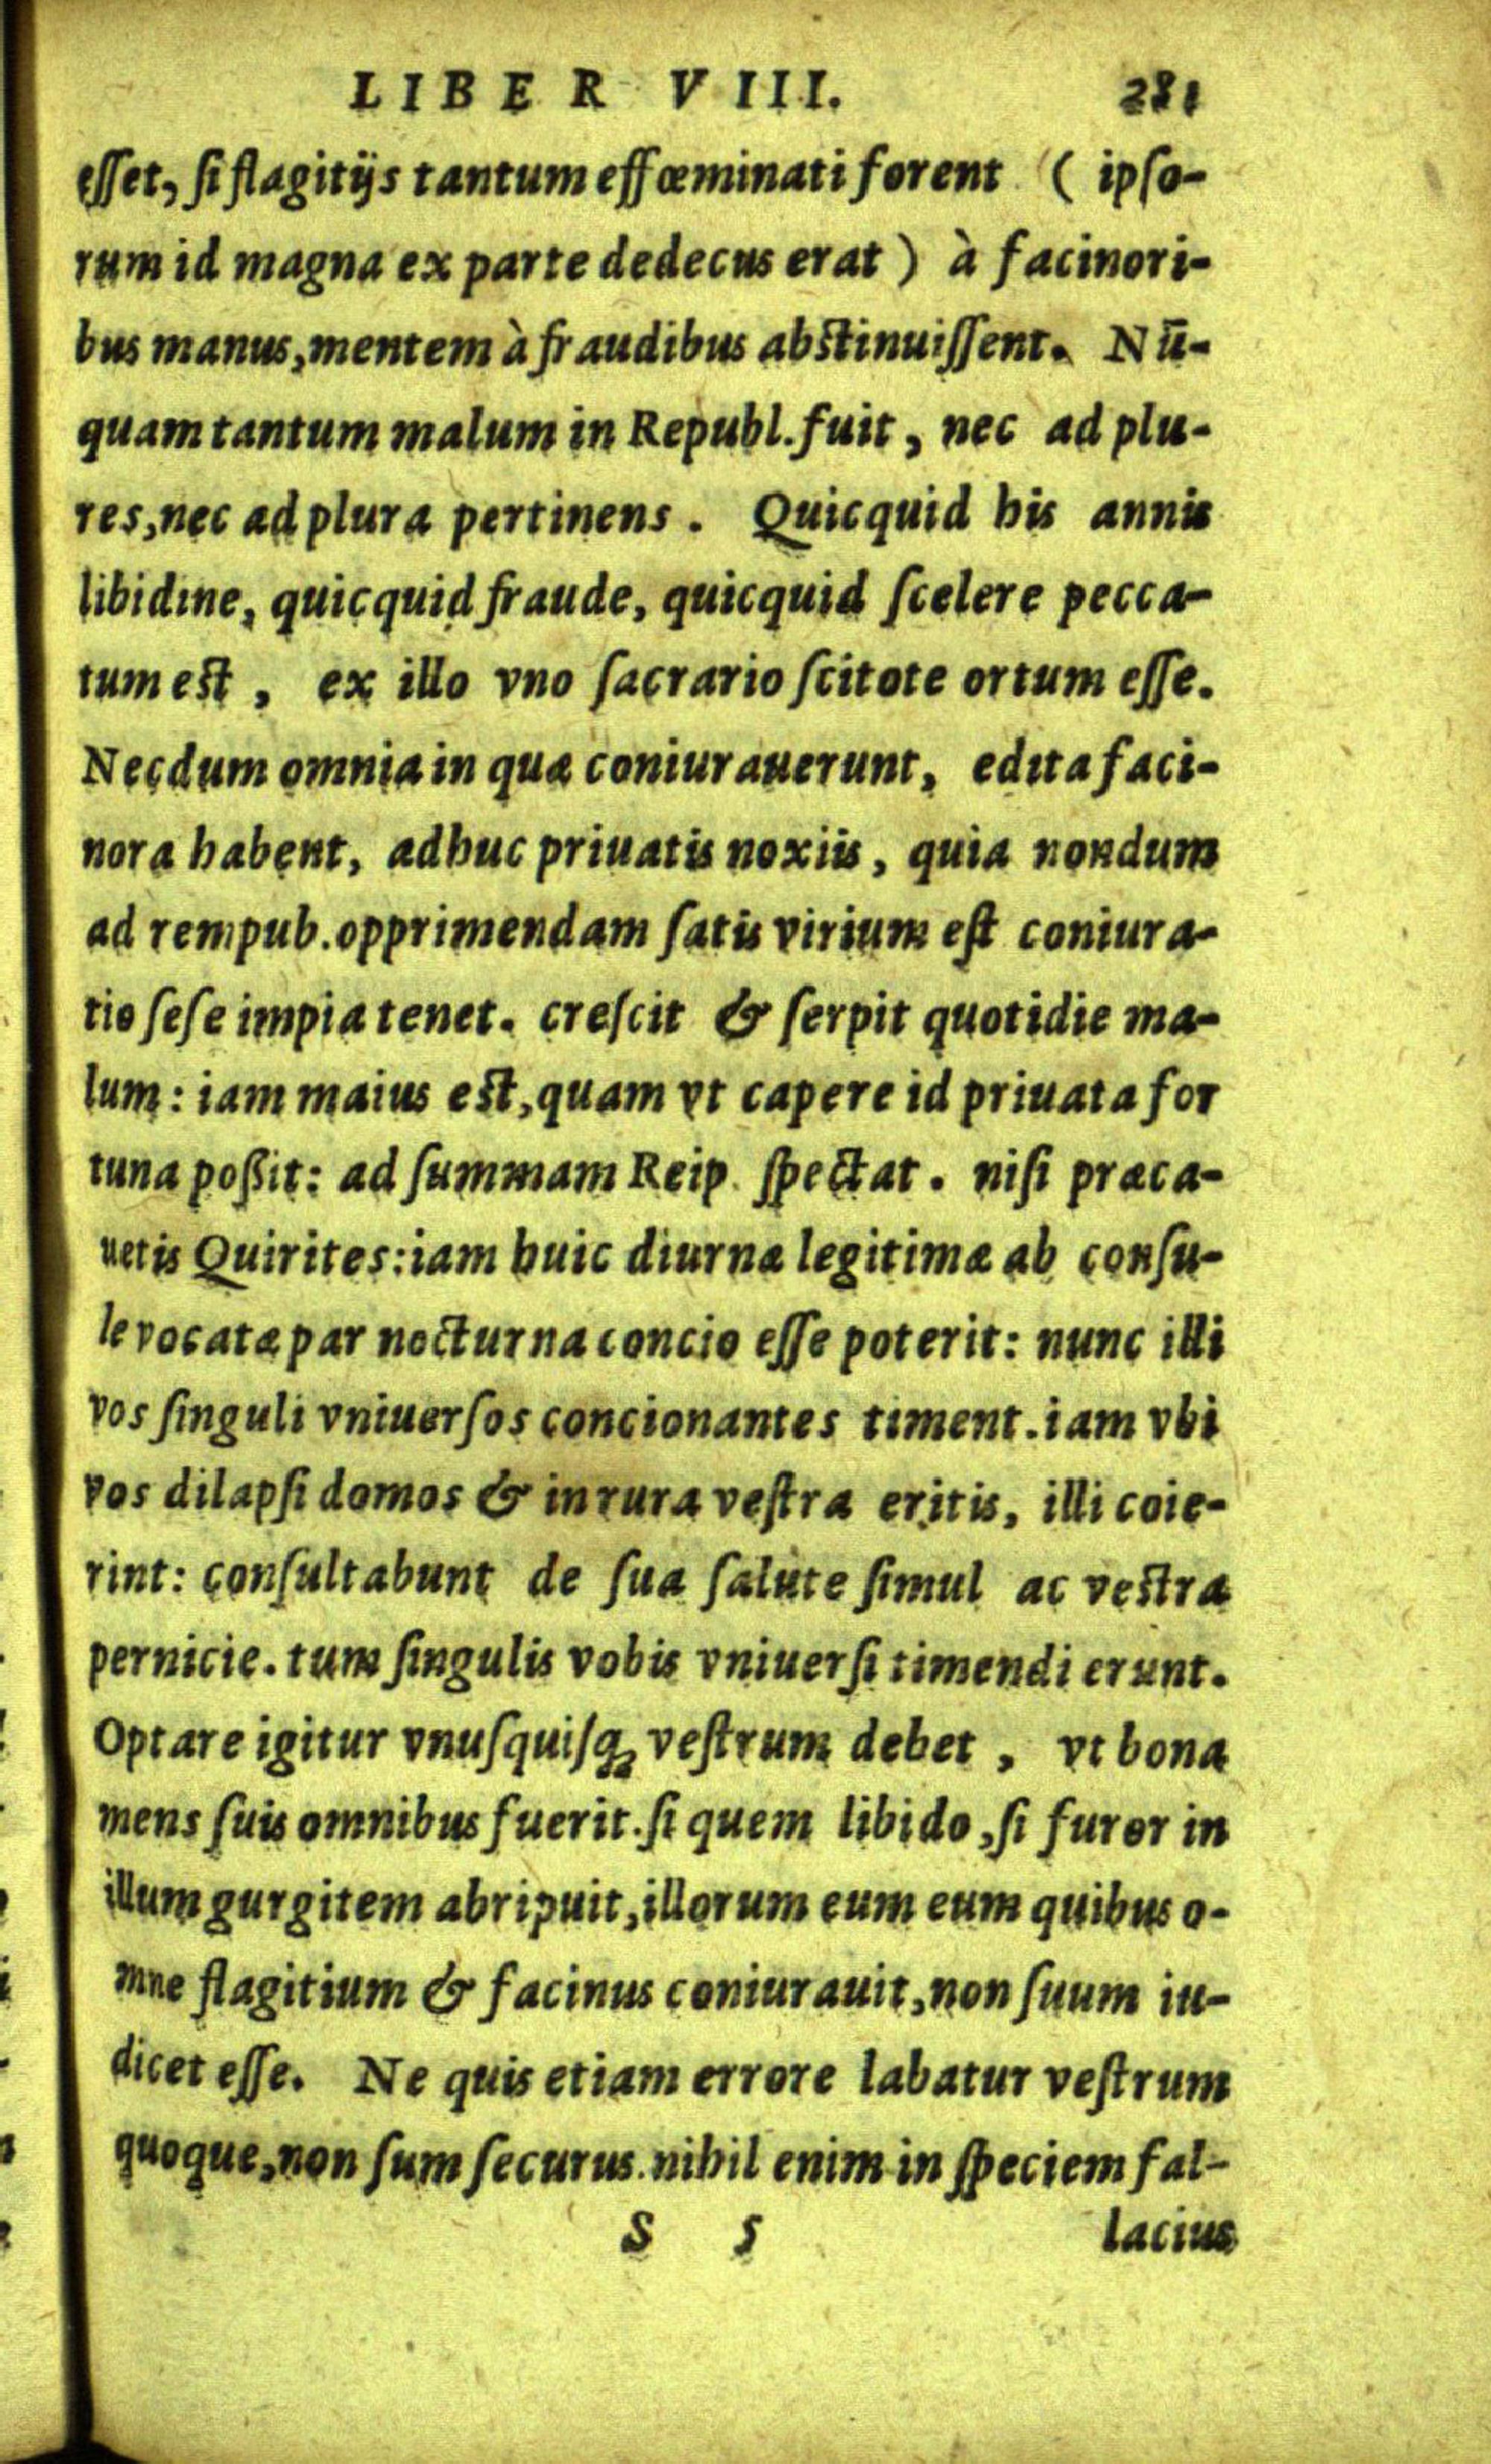 LIBER VIII. 281
eſſet, ſi flagitijs tantum effœminati forent ( ipſo-
rum id magna ex parte dedecus erat ) à facinori-
bus manus, mentem à fraudibus abstinuiſſent. Nū-
quam tantum malum in Republ. fuit, nec ad plu-
res, nec ad plura pertinens. Quicquid his annis
libidine, quicquid fraude, quicquid ſcelere pecca-
tum est, ex illo vno ſacrario ſcitote ortum eſſe.
Necdum omnia in quæ coniurauerunt, edita faci-
nora habent, adhuc priuatis noxiis, quia nondum
ad rempub. opprimendam ſatis virium eſt coniura-
tio ſeſe impia tenet. creſcit & ſerpit quotidie ma-
lum: iam maius est, quam vt capere id priuata for
tuna poßit: ad ſummam Reip. ſpectat. niſi præca-
uetis Quirites: iam huic diurnæ legitimæ ab conſu-
le vocatæ par nocturna concio eſſe poterit: nunc illi
vos ſinguli vniuerſos concionantes timent. iam vbi
vos dilapſi domos & in rura veſtra eritis, illi coie-
rint: conſultabunt de ſua ſalute ſimul ac vestra
pernicie. tum ſingulis vobis vniuerſi timendi erunt.
Optare igitur vnuſquiſq; veſtrum debet, vt bona
mens ſuis omnibus fuerit. ſi quem libido, ſi furor in
illum gurgitem abripuit, illorum eum eum quibus o-
mne flagitium & facinus coniurauit, non ſuum iu-
dicet eſſe. Ne quis etiam errore labatur veſtrum
quoque, non ſum ſecurus. nihil enim in ſpeciem fal-
S 5 lacius